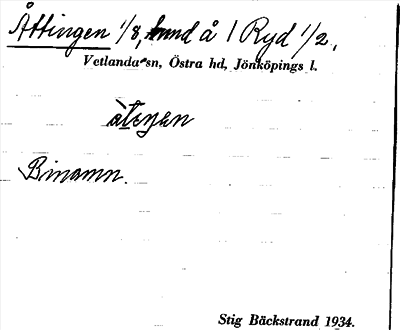 Åttingen 1/8, hmd å 1 Ryd 1/2,
Vetlanda sn, Östra hd, Jönköpings l.
Binamn.
Stig Bäckstrand 1934.